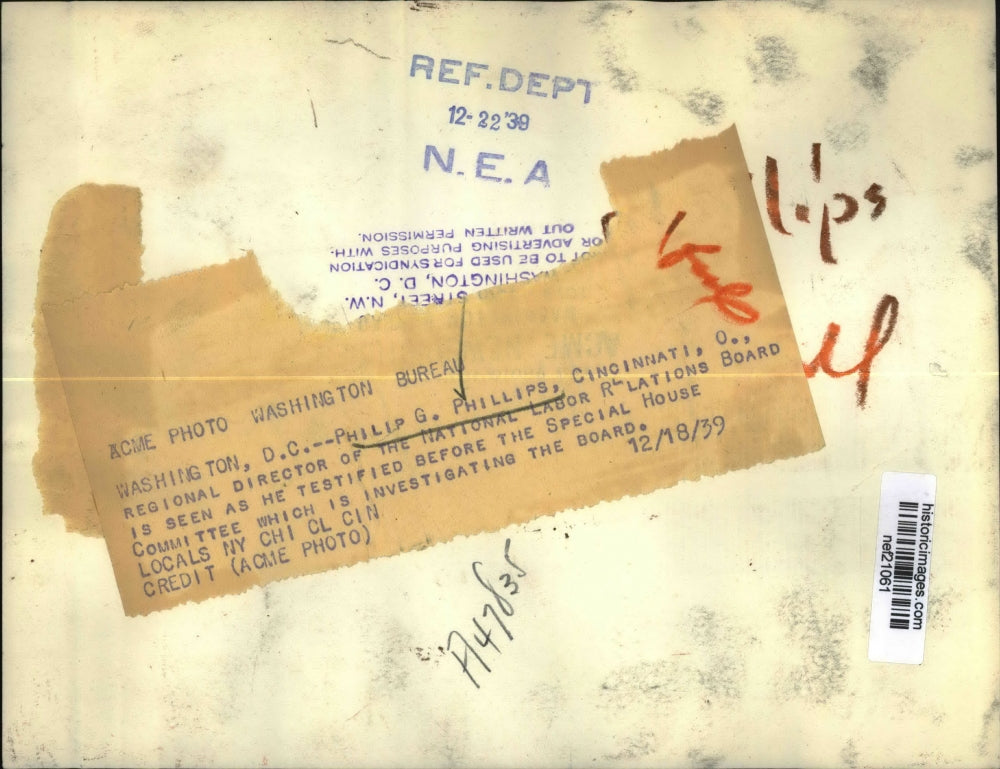 REF. DEPT
12-22'39
N. E. A
OUT WRITTEN PERMISSION.
OR ADVERTISING PURPOSES WITH.
OT TO BE USED FOR SYNDICATION
ASHINGTON, D. C.
STREET, N.W.
lips
ACME PHOTO WASHINGTON BUREAU
WASHINGTON, D.C.--PHILIP G. PHILLIPS, CINCINNATI, O.,
REGIONAL DIRECTOR OF THE NATIONAL LABOR RELATIONS BOARD
IS SEEN AS HE TESTIFIED BEFORE THE SPECIAL HOUSE
COMMITTEE WHICH IS INVESTIGATING THE BOARD.
LOCALS NY CHI CL CIN 12/18/39
CREDIT (ACME PHOTO)
historicimages.com
nef21061